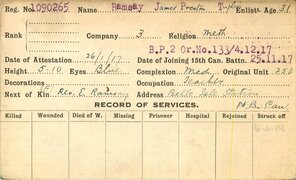 Reg. No. 1090265 Name Ramsay James Preston Enlist. Age 31
Rank Company 3 Religion Meth
B.P.2 Or.No.133/4.12.17
Date of Attestation 26/1/17 Date of Joining 15th Can. Battn. 25.11.17
Height 5-10 Eyes Blue Complexion Med. Original Unit 253
Decorations Occupation Teacher
Next of Kin Rev. E. Ramsay Address Belle Isle Station
RECORD OF SERVICES. N.B. Can.
Killed Wounded Died of W. Missing Prisoner Hospital Rejoined Struck off